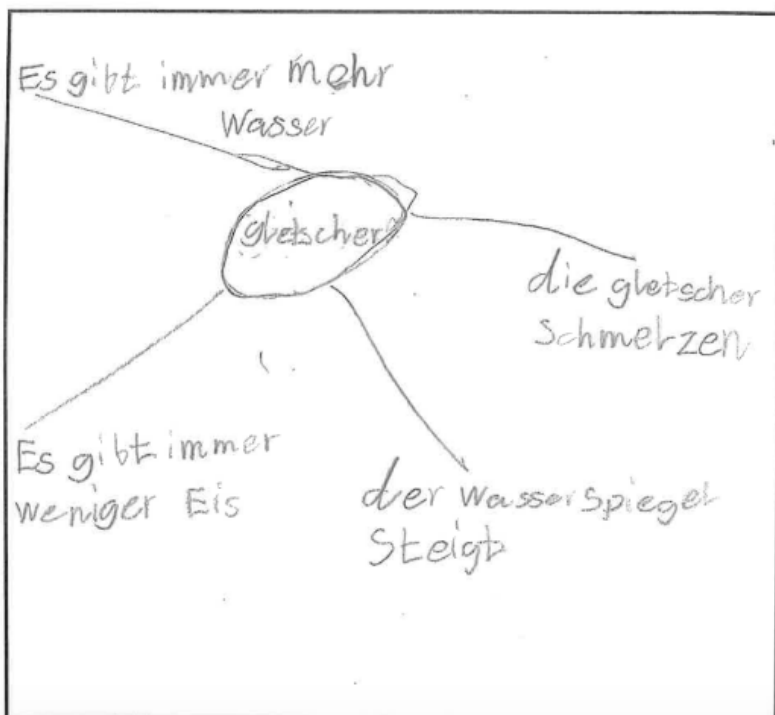 Es gibt immer mehr
Wasser
gletscher
die gletscher
Schmelzen
Es gibt immer
weniger Eis
der Wasserspiegel
Steigt